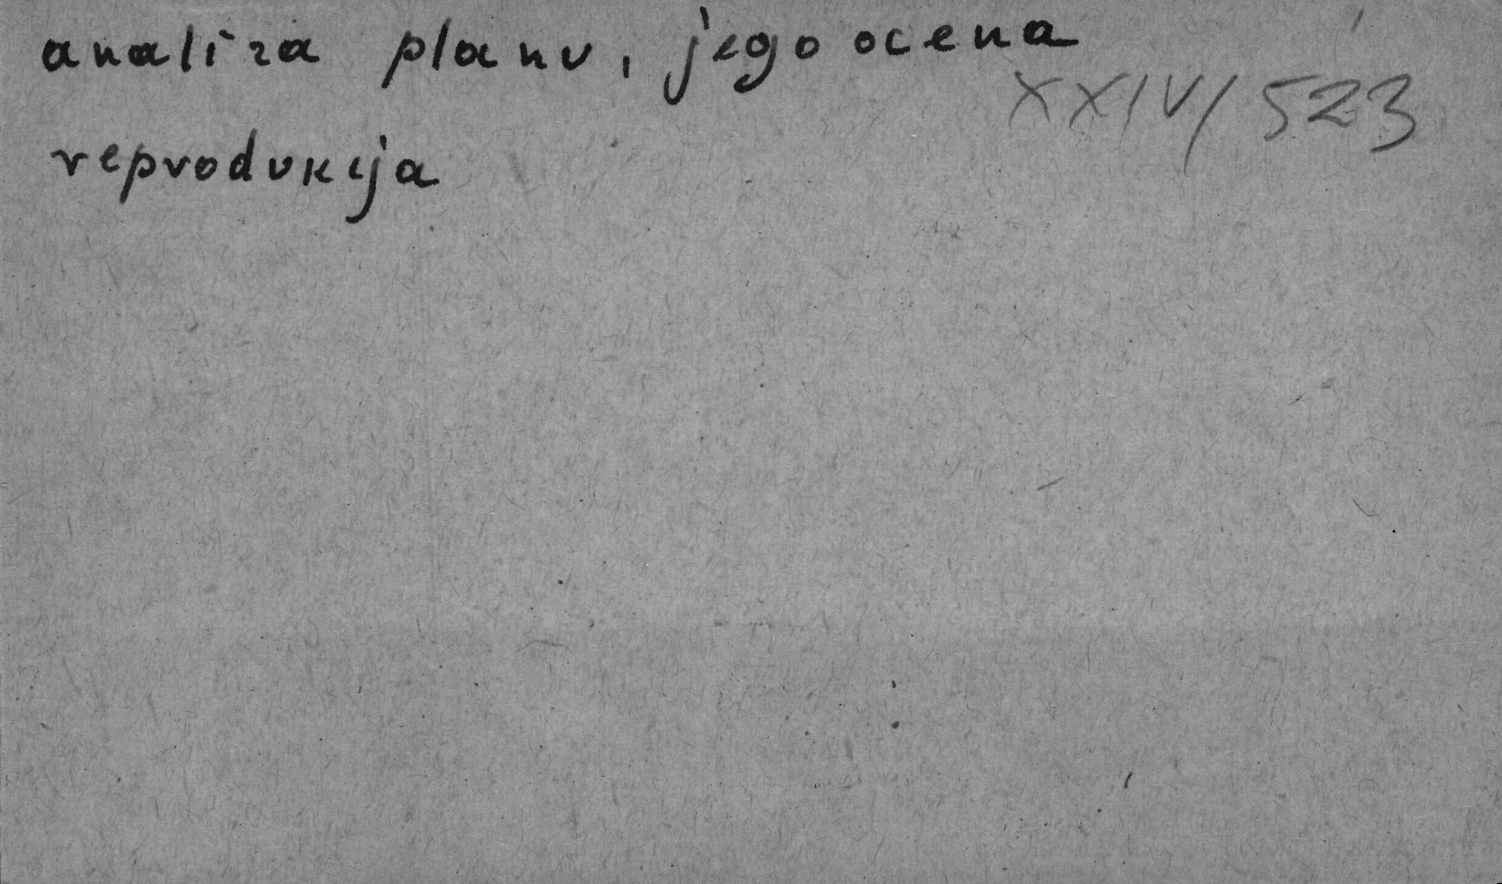 analiza planu, jego ocena
XXIV/523
reprodukcja